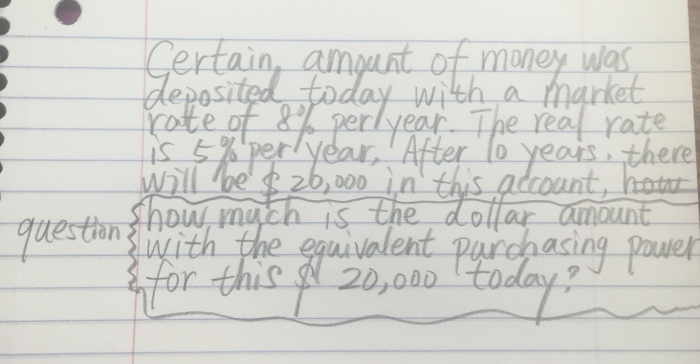 Certain, amount of money was
deposited today with a market
rate of 8% per year. The real rate
is 5% per year. After 10 years, there
will be $20,000 in this account, how
question
how much is the dollar amount
with the equivalent purchasing power
for this $ 20,000 today?